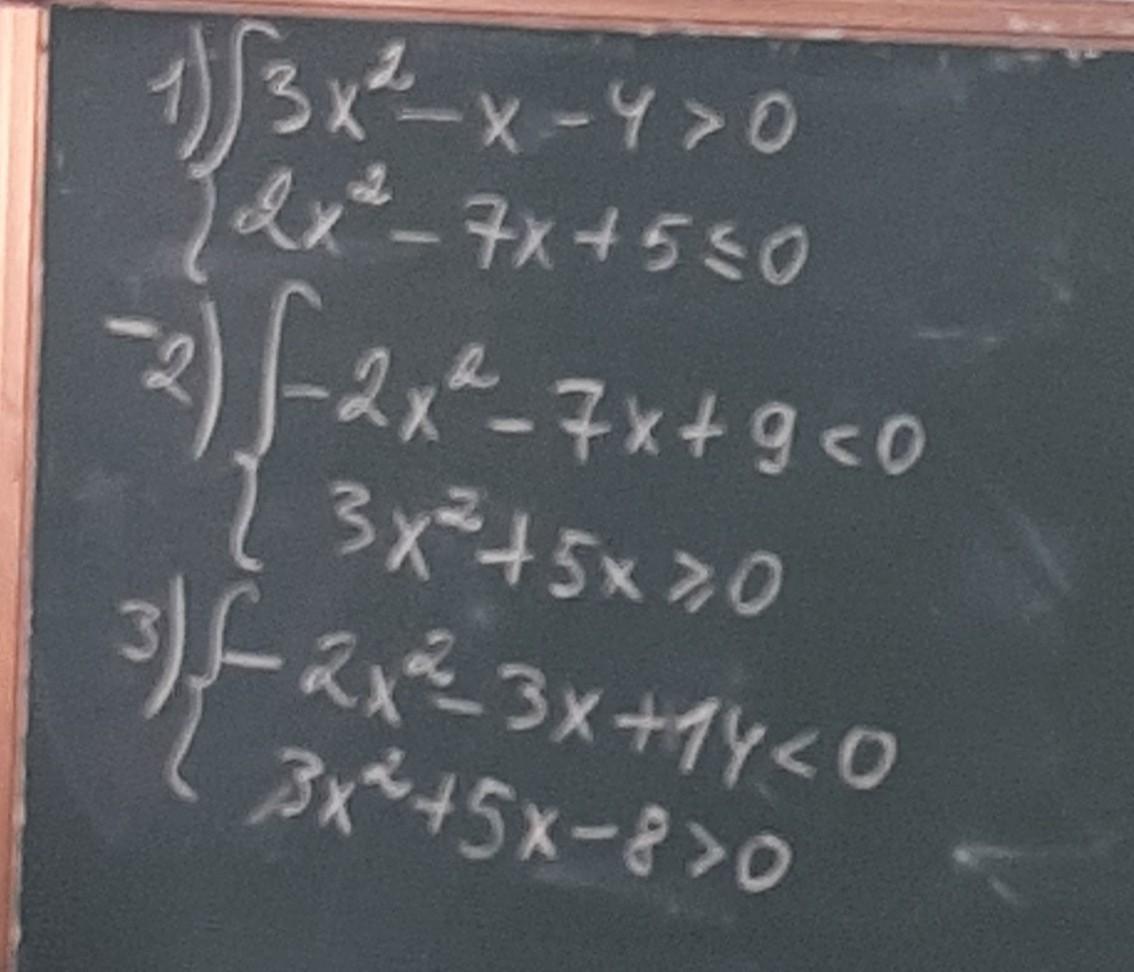 1) { 3x² - x - 4 > 0
2x² - 7x + 5 ≤ 0
2) { -2x² - 7x + 9 < 0
3x² + 5x ≥ 0
3) { -2x² - 3x + 14 < 0
3x² + 5x - 8 > 0